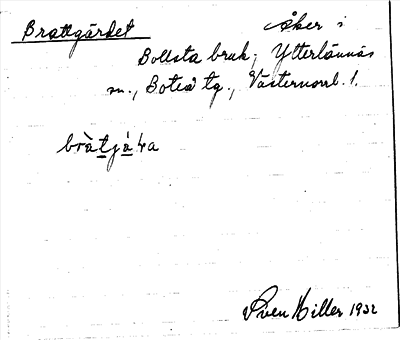 Brattgärdet Åker i
Bollsta bruk, Ytterlännäs
sn., Boteå tg., Västernorrl. l.
bràtjá
Sven Hiller 1932